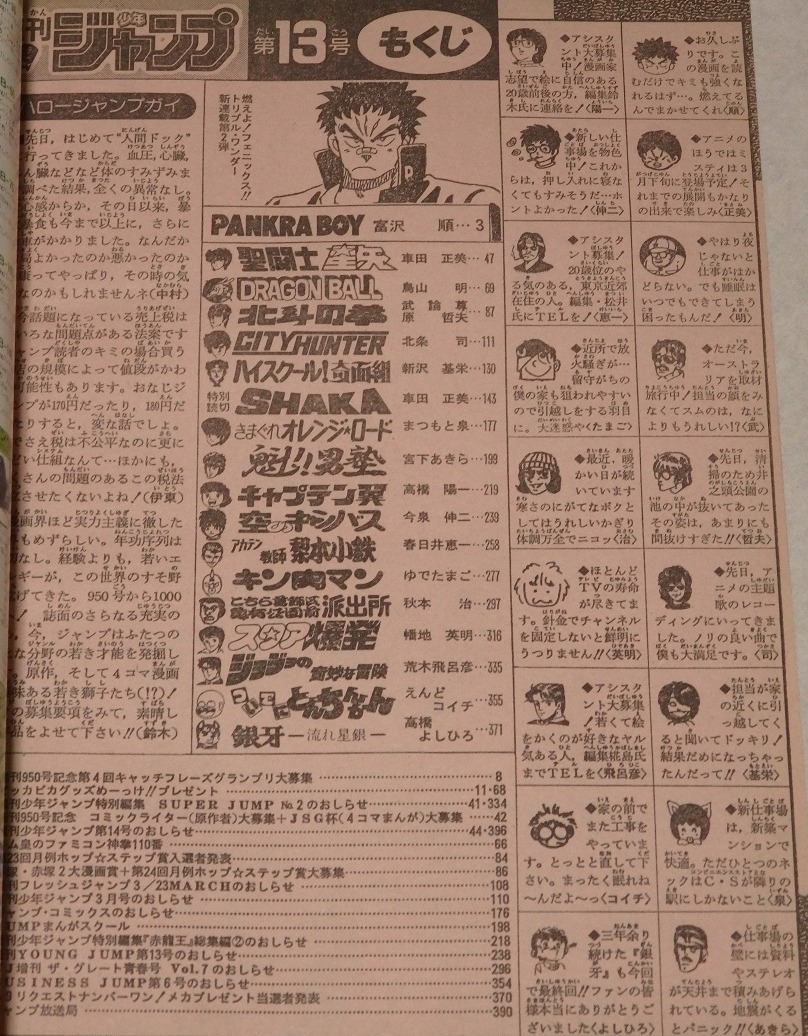 刊少年ジャンプ
第13号 もくじ
ハロージャンプガイ
先日、はじめて“人間ドック”
行ってきました。血圧、心臓、
ん臓などなど体のすみずみま
調べた結果、全くの異常なし。
心感からか、その日以来、暴
暴食も今まで以上に、さらに
車がかかりました。なんだか
良よかったのか悪かったのか
って やっぱり、その時の気
なのかもしれませんネ(中村)
今話題になっている売上税は
いろな問題点がある法案です
ャンプ読者のキミの場合買う
店の規模によって値段がかわ
可能性もあります。おなじジ
ンプが170円だったり、180円だ
たりすると、変な話でしょ。
でさえ税は不公平なのに更に
どい仕組なんて…ほかにも、
くさんの問題のあるこの税法
立させたくないよね!(伊東)
画界ほど実力主義に徹した
もめずらしい。年功序列は
なし。経験よりも、若いエ
ギーが、この世界のすそ野
げてきた。950号から1000
! 誌面のさらなる充実の
、今、ジャンプはふたつの
な分野の若き才能を発掘し
。原作、そして4コマ漫画
味ある若き獅子たち(!?)!
の募集要項をみて、素晴し
品をよせて下さい!!(鈴木)
燃えよ!フェニックス!!
トリプル・ワンダー
新連載第2弾!
PANKRA BOY 富沢 順…3
聖闘士星矢 車田 正美…47
DRAGON BALL 鳥山 明…69
北斗の拳 武論尊 原 哲夫…87
CITY HUNTER 北条 司…111
ハイスクール!奇面組 新沢 基栄…130
特別読切 SHAKA 車田 正美…143
きまぐれオレンジ★ロード まつもと泉…177
魁!!男塾 宮下あきら…199
キャプテン翼 高橋 陽一…219
空のキャンバス 今泉 伸二…239
アカテン教師梨本小鉄 春日井恵一…258
キン肉マン ゆでたまご…277
こちら葛飾区亀有公園前派出所 秋本 治…297
スクラップ爆発 幡地 英明…316
ジョジョの奇妙な冒険 荒木飛呂彦…335
ついでにとんちんかん えんどコイチ…355
銀牙―流れ星銀― 高橋よしひろ…371
刊950号記念第4回キャッチフレーズグランプリ大募集…8
ッカピカグッズめーっけ!!プレゼント…11・68
刊少年ジャンプ特別編集 SUPER JUMP №2のおしらせ…41・334
刊950号記念 コミックライター(原作者)大募集+JSG杯(4コマまんが)大募集…42
刊少年ジャンプ第14号のおしらせ…44・396
ム皇のファミコン神拳110番…66
23回月例ホップ☆ステップ賞入選者発表…84
塚・赤塚2大漫画賞+第24回月例ホップ☆ステップ賞大募集…86
刊フレッシュジャンプ3/23MARCHのおしらせ…108
刊少年ジャンプ3月号のおしらせ…110
ャンプ・コミックスのおしらせ…176
UMPまんがスクール…198
刊少年ジャンプ特別編集『赤龍王』総集編②のおしらせ…218
刊YOUNG JUMP第13号のおしらせ…238
増刊 ザ・グレート青春号 Vol.7のおしらせ…296
USINESS JUMP第6号のおしらせ…354
リクエストナンバーワン!メカプレゼント当選者発表…370
ャンプ放送局…390
◆アシスタント大募集中!漫画家
志望で絵に自信のある
20歳前後の方、編集鈴
木氏に連絡を!〈陽一〉
◆新しい仕事場を物色中!これか
らは、押し入れに寝な
くてもすみそうだ…ホ
ントよかった!〈伸二〉
◆アシスタント募集!20歳位のや
る気のある、東京近郊
在住の人。編集・松井
氏にTELを!〈恵一〉
◆近所で放火騒ぎが…留守がちの
僕の家も狙われやすい
ので引越しをする羽目
に。大迷惑や〈たまご〉
◆最近、暖かい日が続いています
寒さのにがてなボクと
してはうれしいかぎり
体調万全でニコッ〈治〉
◆ほとんどTVの寿命が尽きてま
す。針金でチャンネル
を固定しないと鮮明に
うつりません!!〈英明〉
◆アシスタント大募集!若くて絵
をかくのが好きなヤル
気ある人、編集椛島氏
までTELを〈飛呂彦〉
◆家の前でまた工事をやっていま
す。とっとと直して下
さい。まったく眠れね
〜んだよ〜っ〈コイチ〉
◆三年余り続けた『銀牙』も今回
で最終回!!ファンの皆
様本当にありがとうご
ざいました〈よしひろ〉
◆お久しぶりです。この漫画を読
むだけでキミも強くな
れるはず…。燃えてる
んでまかせてくれ〈順〉
◆アニメのほうではミスティは3
月下旬に登場予定!そ
れまでの展開もかなり
の出来で楽しみ〈正美〉
◆やはり夜じゃないと仕事がはか
どらない。でも睡眠は
いつでもできてしまう
困ったもんだ!〈明〉
◆ただ今、オーストラリアを取材
旅行中!担当の顔をみ
なくてスムのは、なに
よりもうれしい!?〈武〉
◆先日、清掃のため井之頭公園の
池の中が抜いてあった
その姿は、あまりにも
間抜けすぎた!!〈哲夫〉
◆先日、アニメの主題歌のレコー
ディングにいってきま
した。ノリの良い曲で
僕も大満足です。〈司〉
◆担当が家の近くに引っ越してく
ると聞いてドッキリ!
結果だめになっちゃっ
たんだって!!〈基栄〉
◆新仕事場は、新築マンションで
快適。ただひとつのネ
ックはC・Sが隣りの
駅にしかないこと〈泉〉
◆仕事場の壁には資料やステレオ
が天井まで積みあげら
れている。地震がくる
とパニック!!〈あきら〉